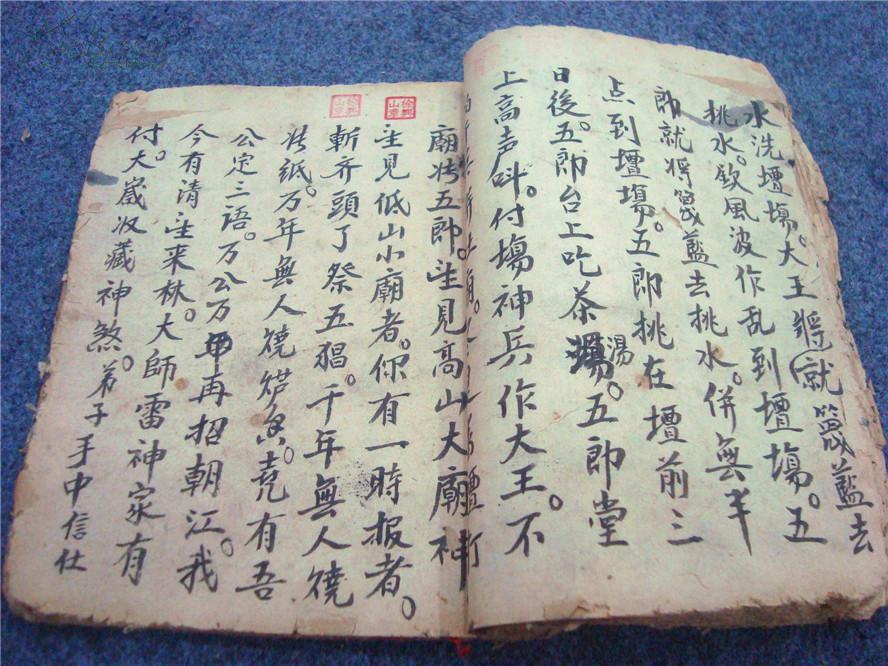 水洗壇場。大王將就篾藍去
挑水。欽風波作乱到壇場。五
郎就将篾藍去挑水。併無半
点到壇場。五郎挑在壇前三
日後。五郎台上吃茶湯。五郎堂
上高声叫。付場神兵作大王。不
廟壯五郎。望見高山大廟神
望見低山小廟者。你有一時报者。
斬齐頭了祭五猖。千年無人燒
紙。万年無人燒炉香。堯有吾
公定三语。万公万年再招朝江。我
今有清望来林。大師雷神家有
付。大嵗収藏神煞。弟子手中信仕